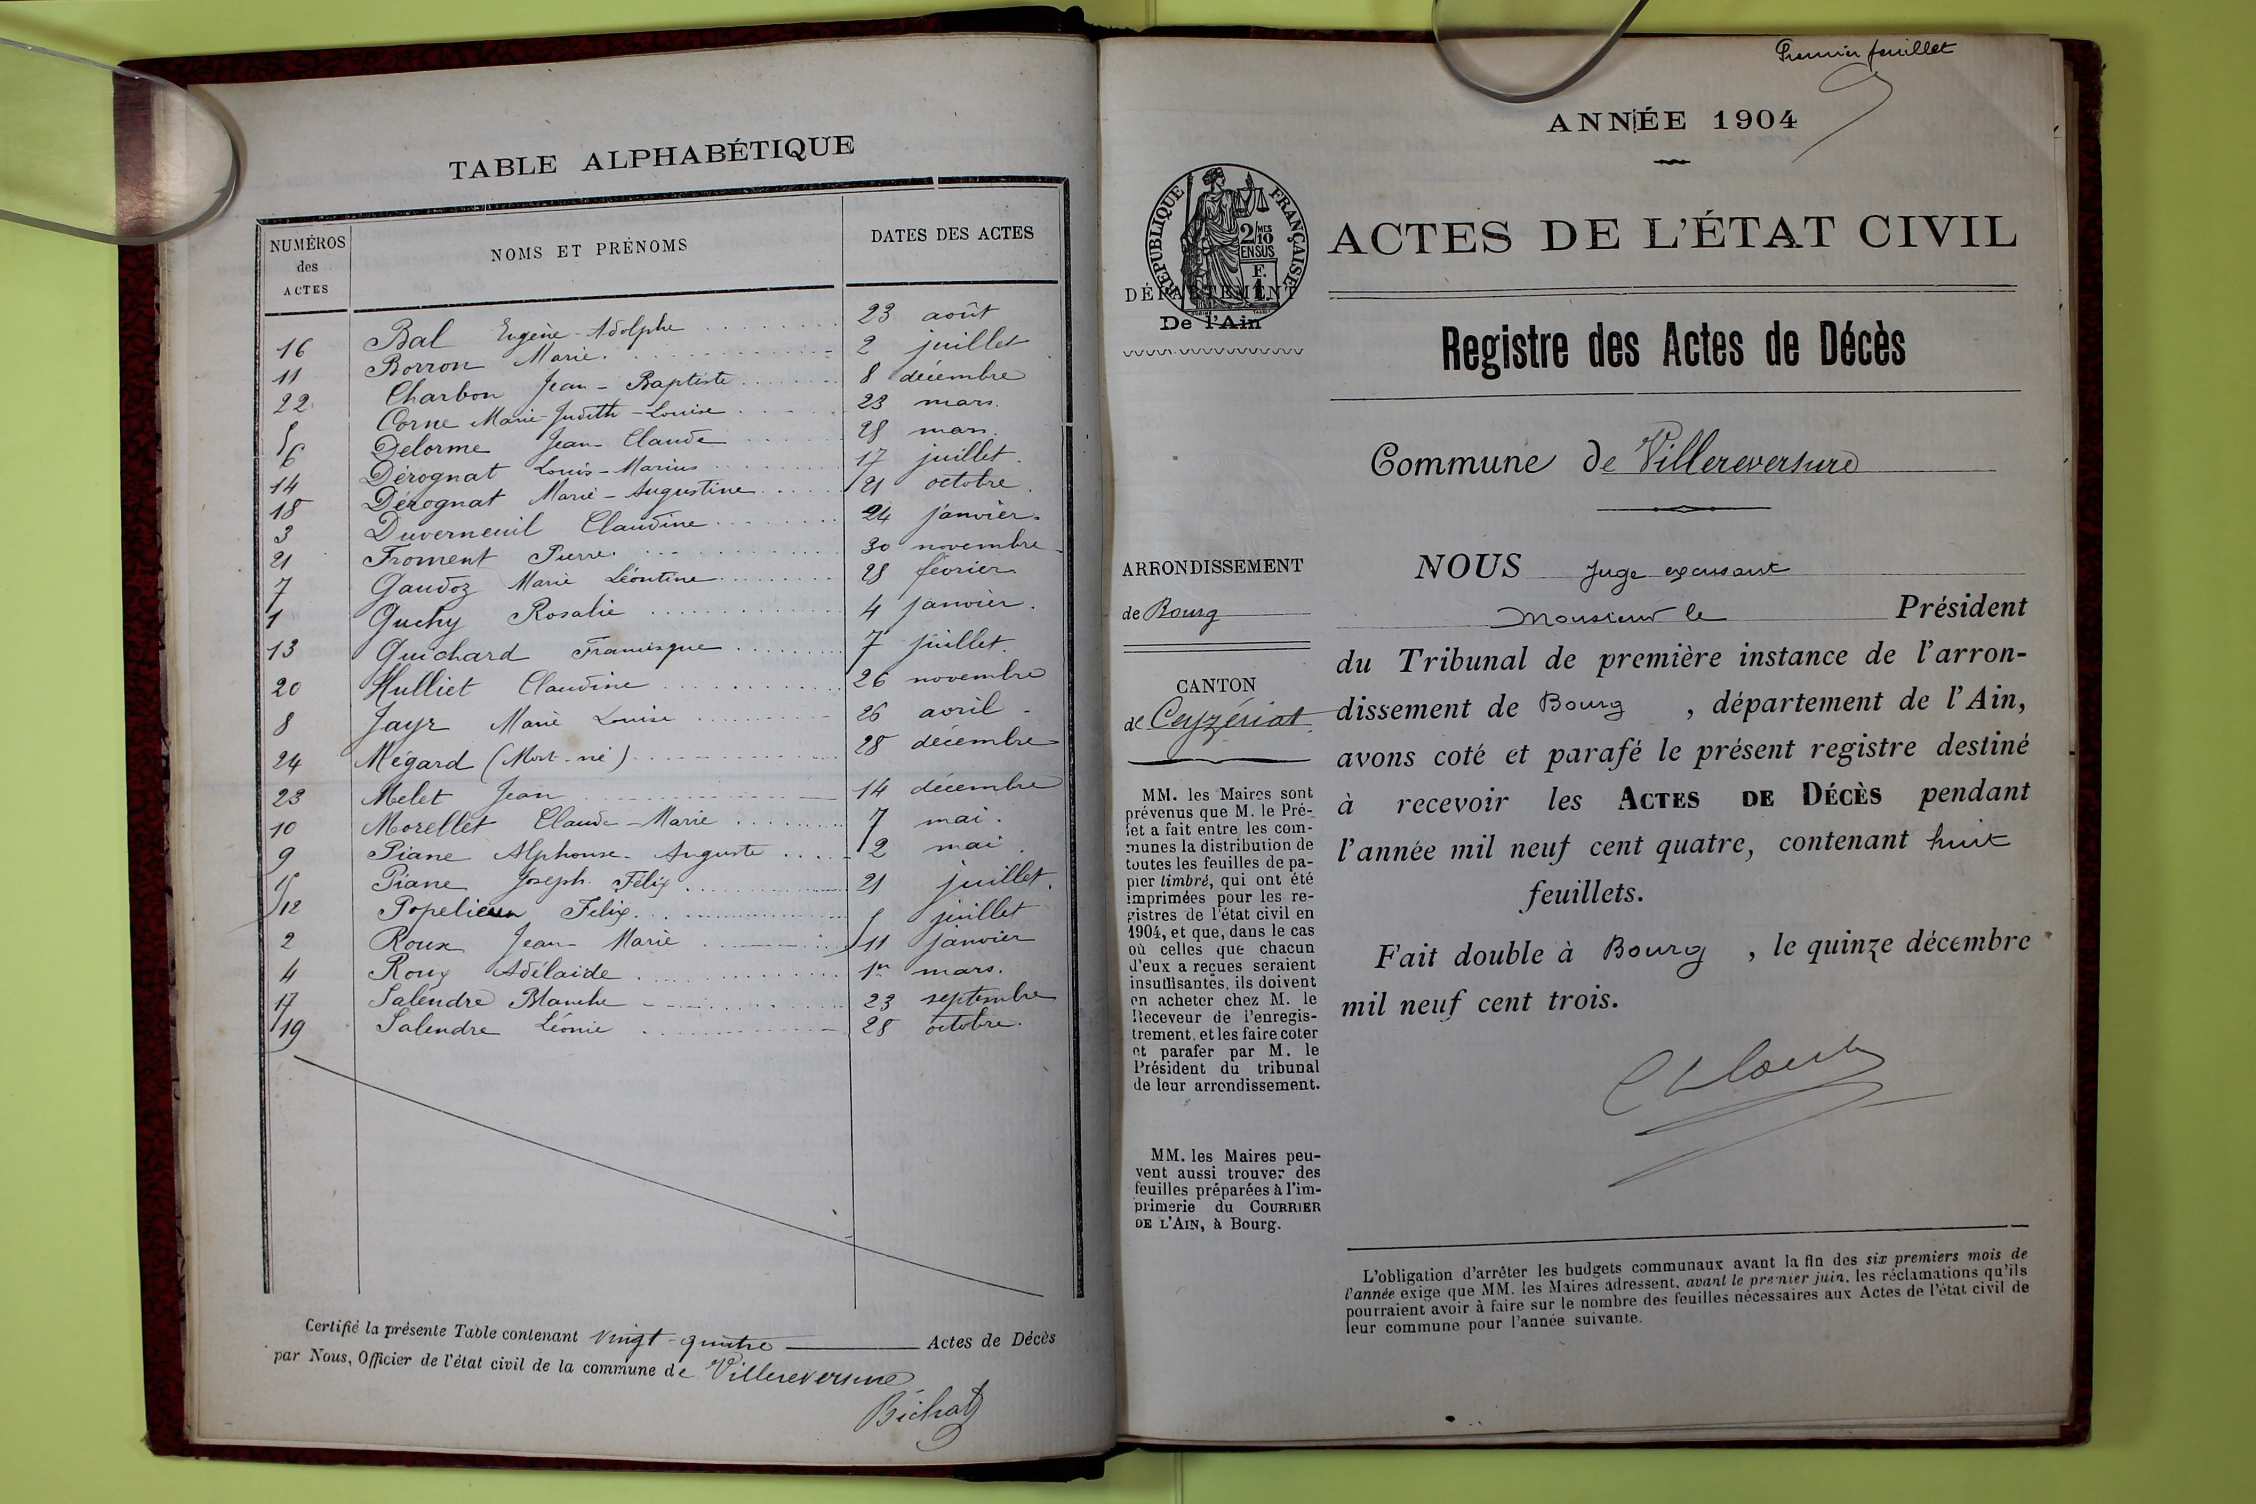 TABLE ALPHABÉTIQUE
NUMÉROS des ACTES NOMS ET PRÉNOMS DATES DES ACTES
16 Bal Eugène-Adolphe 23 août
11 Borron Marie 2 juillet
22 Charbon Jean-Baptiste 8 décembre
5 Corne Marie-Judith-Louise 23 mars
6 Delorme Jean-Claude 28 mars
14 Dérognat Louis-Marius 17 juillet
18 Dérognat Marie-Augustine 21 octobre
3 Duverneuil Claudine 24 janvier
21 Froment Pierre 30 novembre
7 Gaudoz Marie Léontine 28 février
1 Guchy Rosalie 4 janvier
13 Guichard Francisque 7 juillet
20 Hulliet Claudine 26 novembre
8 Jayr Marie Louise 26 avril
24 Mégard (Mort-né) 28 décembre
23 Melet Jean 14 décembre
10 Morellet Claude-Marie 7 mai
9 Piane Alphonse-Auguste 2 mai
15 Piane Joseph Félix 21 juillet
12 Popelieun Felix 5 juillet
2 Roux Jean-Marie 11 janvier
4 Roux Adélaide 1er mars
17 Salendre Blanche 23 septembre
19 Salendre Léonie 28 octobre
Certifié la présente Table contenant vingt-quatre Actes de Décès
par Nous, Officier de l'état civil de la commune de Villereversure
Bichat
Premier feuillet
ANNÉE 1904
RÉPUBLIQUE FRANÇAISE
2/10 MES
EN SUS
F.
1
ACTES DE L'ÉTAT CIVIL
DÉPARTEMENT
De l'Ain
Registre des Actes de Décès
Commune de Villereversure
ARRONDISSEMENT
de Bourg
CANTON
de Ceyzériat
MM. les Maires sont
prévenus que M. le Pré-
fet a fait entre les com-
munes la distribution de
toutes les feuilles de pa-
pier timbré, qui ont été
imprimées pour les re-
gistres de l'état civil en
1904, et que, dans le cas
où celles que chacun
d'eux a reçues seraient
insuffisantes, ils doivent
en acheter chez M. le
Receveur de l'enregis-
trement, et les faire coter
et parafer par M. le
Président du tribunal
de leur arrondissement.
MM. les Maires peu-
vent aussi trouver des
feuilles préparées à l'im-
primerie du COURRIER
DE L'AIN, à Bourg.
NOUS Juge excusant
Monsieur le Président
du Tribunal de première instance de l'arron-
dissement de Bourg, département de l'Ain,
avons coté et parafé le présent registre destiné
à recevoir les ACTES DE DÉCÈS pendant
l'année mil neuf cent quatre, contenant huit
feuillets.
Fait double à Bourg, le quinze décembre
mil neuf cent trois.
L'obligation d'arrêter les budgets communaux avant la fin des six premiers mois de
l'année exige que MM. les Maires adressent, avant le premier juin, les réclamations qu'ils
pourraient avoir à faire sur le nombre des feuilles nécessaires aux Actes de l'état civil de
leur commune pour l'année suivante.